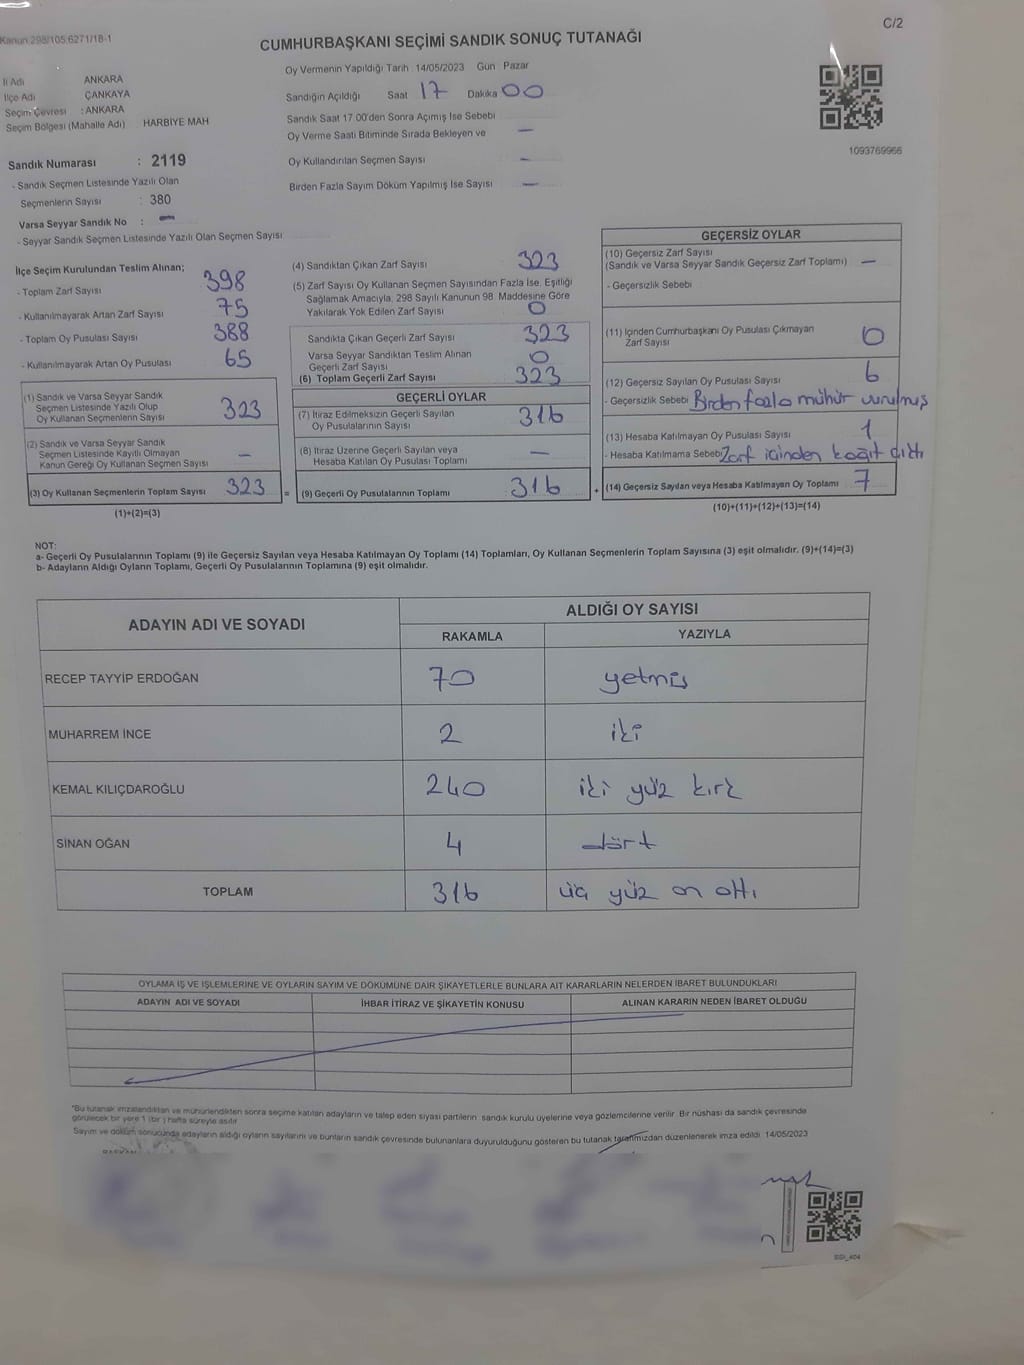 C/2
Kanun:298/105;6271/18-1
CUMHURBAŞKANI SEÇİMİ SANDIK SONUÇ TUTANAĞI
İl Adı ANKARA
İlçe Adı ÇANKAYA
Seçim Çevresi : ANKARA
Seçim Bölgesi (Mahalle Adı) HARBİYE MAH
Sandık Numarası : 2119
- Sandık Seçmen Listesinde Yazılı Olan
Seçmenlerin Sayısı : 380
Varsa Seyyar Sandık No : –
- Seyyar Sandık Seçmen Listesinde Yazılı Olan Seçmen Sayısı
Oy Vermenin Yapıldığı Tarih : 14/05/2023 Gün : Pazar
Sandığın Açıldığı Saat 17 Dakika 00
Sandık Saat 17.00'den Sonra Açımış İse Sebebi
Oy Verme Saati Bitiminde Sırada Bekleyen ve –
Oy Kullandırılan Seçmen Sayısı –
Birden Fazla Sayım Döküm Yapılmış İse Sayısı –
1093769966
İlçe Seçim Kurulundan Teslim Alınan;
- Toplam Zarf Sayısı 398
- Kullanılmayarak Artan Zarf Sayısı 75
- Toplam Oy Pusulası Sayısı 388
- Kullanılmayarak Artan Oy Pusulası 65
(1) Sandık ve Varsa Seyyar Sandık
Seçmen Listesinde Yazılı Olup
Oy Kullanan Seçmenlerin Sayısı 323
(2) Sandık ve Varsa Seyyar Sandık
Seçmen Listesinde Kayıtlı Olmayan
Kanun Gereği Oy Kullanan Seçmen Sayısı –
(3) Oy Kullanan Seçmenlerin Toplam Sayısı 323 =
(1)+(2)=(3)
(4) Sandıktan Çıkan Zarf Sayısı 323
(5) Zarf Sayısı Oy Kullanan Seçmen Sayısından Fazla İse, Eşitliği
Sağlamak Amacıyla, 298 Sayılı Kanunun 98. Maddesine Göre
Yakılarak Yok Edilen Zarf Sayısı 0
Sandıkta Çıkan Geçerli Zarf Sayısı 323
Varsa Seyyar Sandıktan Teslim Alınan
Geçerli Zarf Sayısı 0
(6) Toplam Geçerli Zarf Sayısı 323
GEÇERLİ OYLAR
(7) İtiraz Edilmeksizin Geçerli Sayılan
Oy Pusulalarının Sayısı 316
(8) İtiraz Üzerine Geçerli Sayılan veya
Hesaba Katılan Oy Pusulası Toplamı –
(9) Geçerli Oy Pusulalarının Toplamı 316 +
GEÇERSİZ OYLAR
(10) Geçersiz Zarf Sayısı
(Sandık ve Varsa Seyyar Sandık Geçersiz Zarf Toplamı) –
- Geçersizlik Sebebi
(11) İçinden Cumhurbaşkanı Oy Pusulası Çıkmayan
Zarf Sayısı 0
(12) Geçersiz Sayılan Oy Pusulası Sayısı 6
- Geçersizlik Sebebi Birden fazla mühür vurulmuş
(13) Hesaba Katılmayan Oy Pusulası Sayısı 1
- Hesaba Katılmama Sebebi Zarf içinden kağıt çıktı
(14) Geçersiz Sayılan veya Hesaba Katılmayan Oy Toplamı 7
(10)+(11)+(12)+(13)=(14)
NOT:
a- Geçerli Oy Pusulalarının Toplamı (9) ile Geçersiz Sayılan veya Hesaba Katılmayan Oy Toplamı (14) Toplamları, Oy Kullanan Seçmenlerin Toplam Sayısına (3) eşit olmalıdır. (9)+(14)=(3)
b- Adayların Aldığı Oyların Toplamı, Geçerli Oy Pusulalarının Toplamına (9) eşit olmalıdır.
ADAYIN ADI VE SOYADI ALDIĞI OY SAYISI
RAKAMLA YAZIYLA
RECEP TAYYİP ERDOĞAN 70 yetmiş
MUHARREM İNCE 2 iki
KEMAL KILIÇDAROĞLU 240 iki yüz kırk
SİNAN OĞAN 4 dört
TOPLAM 316 üç yüz on altı
OYLAMA İŞ VE İŞLEMLERİNE VE OYLARIN SAYIM VE DÖKÜMÜNE DAİR ŞİKAYETLERLE BUNLARA AİT KARARLARIN NELERDEN İBARET BULUNDUKLARI
ADAYIN ADI VE SOYADI İHBAR İTİRAZ VE ŞİKAYETİN KONUSU ALINAN KARARIN NEDEN İBARET OLDUĞU
*Bu tutanak imzalandıktan ve mühürlendikten sonra seçime katılan adayların ve talep eden siyasi partilerin sandık kurulu üyelerine veya gözlemcilerine verilir. Bir nüshası da sandık çevresinde
görülecek bir yere 1 (bir) hafta süreyle asılır.
Sayım ve döküm sonucunda adayların aldığı oyların sayılarını ve bunların sandık çevresinde bulunanlara duyurulduğunu gösteren bu tutanak tarafımızdan düzenlenerek imza edildi. 14/05/2023